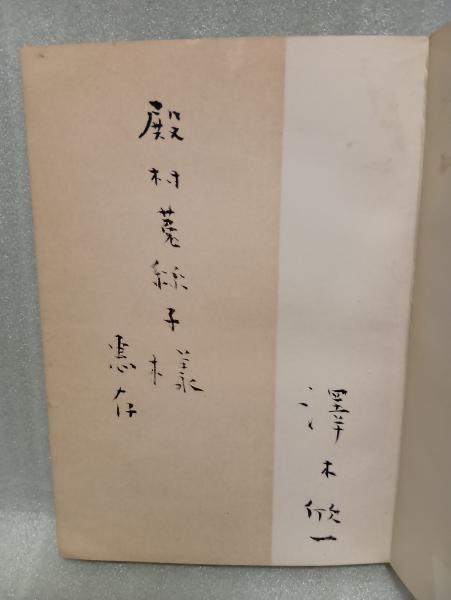 澤木欣一
殿村菟絲子様
恵存